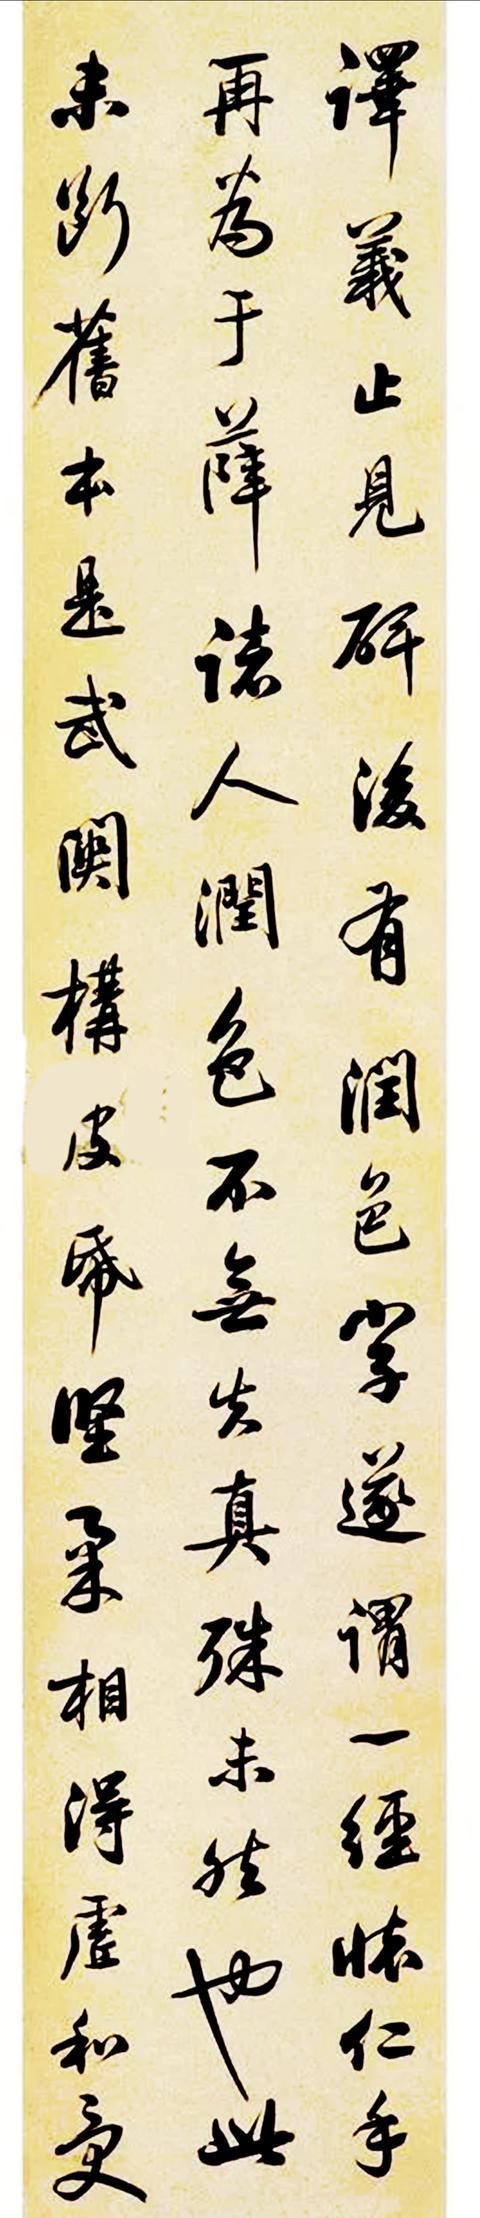 譯義止見碑後有潤色字遂謂一經懷仁手
再為于薛諸人潤色不無失真殊未然也此
未斷舊本是武關構皮帋堅柔相得虛和受